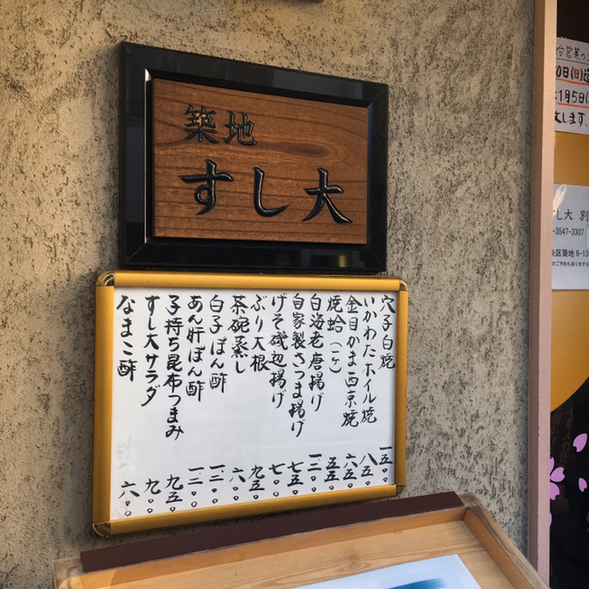 築地
すし大
穴子白焼 一五〇〇
いかわたホイル焼 八五〇
金目かま西京焼 六五〇
焼蛤(一ヶ) 五五〇
白海老唐揚げ 一三〇〇
自家製さつま揚げ 七五〇
げそ磯辺揚げ 七〇〇
ぶり大根 九五〇
茶碗蒸し 六〇〇
白子ぽん酢 一三〇〇
あん肝ぽん酢 一二〇〇
子持ち昆布つまみ 九五〇
すし大サラダ 九〇〇
なまこ酢 六〇〇
0日(日)
1月5日(
します。
すし大 別
-3547-3307
区築地 6-13